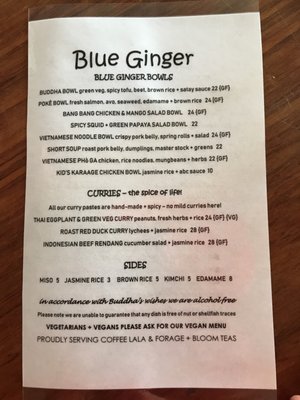 Blue Ginger
BLUE GINGER BOWLS
BUDDHA BOWL green veg, spicy tofu, beet, brown rice + satay sauce 22 {GF}
POKÉ BOWL fresh salmon, avo, seaweed, edamame + brown rice 24 {GF}
BANG BANG CHICKEN & MANGO SALAD BOWL 24 {GF}
SPICY SQUID + GREEN PAPAYA SALAD BOWL 22
VIETNAMESE NOODLE BOWL crispy pork belly, spring rolls + salad 24 {GF}
SHORT SOUP roast pork belly, dumplings, master stock + greens 22
VIETNAMESE PHỞ GA chicken, rice noodles, mungbeans + herbs 22 {GF}
KID'S KARAAGE CHICKEN BOWL jasmine rice + abc sauce 10
CURRIES – the spice of life!
All our curry pastes are hand-made + spicy – no mild curries here!
THAI EGGPLANT & GREEN VEG CURRY peanuts, fresh herbs + rice 24 {GF} {VG}
ROAST RED DUCK CURRY lychees + jasmine rice 28 {GF}
INDONESIAN BEEF RENDANG cucumber salad + jasmine rice 28 {GF}
SIDES
MISO 5 JASMINE RICE 3 BROWN RICE 5 KIMCHI 5 EDAMAME 8
in accordance with Buddha's wishes we are alcohol free
Please note we are unable to guarantee that any dish is free of nut or shellfish traces
VEGETARIANS + VEGANS PLEASE ASK FOR OUR VEGAN MENU
PROUDLY SERVING COFFEE LALA & FORAGE + BLOOM TEAS